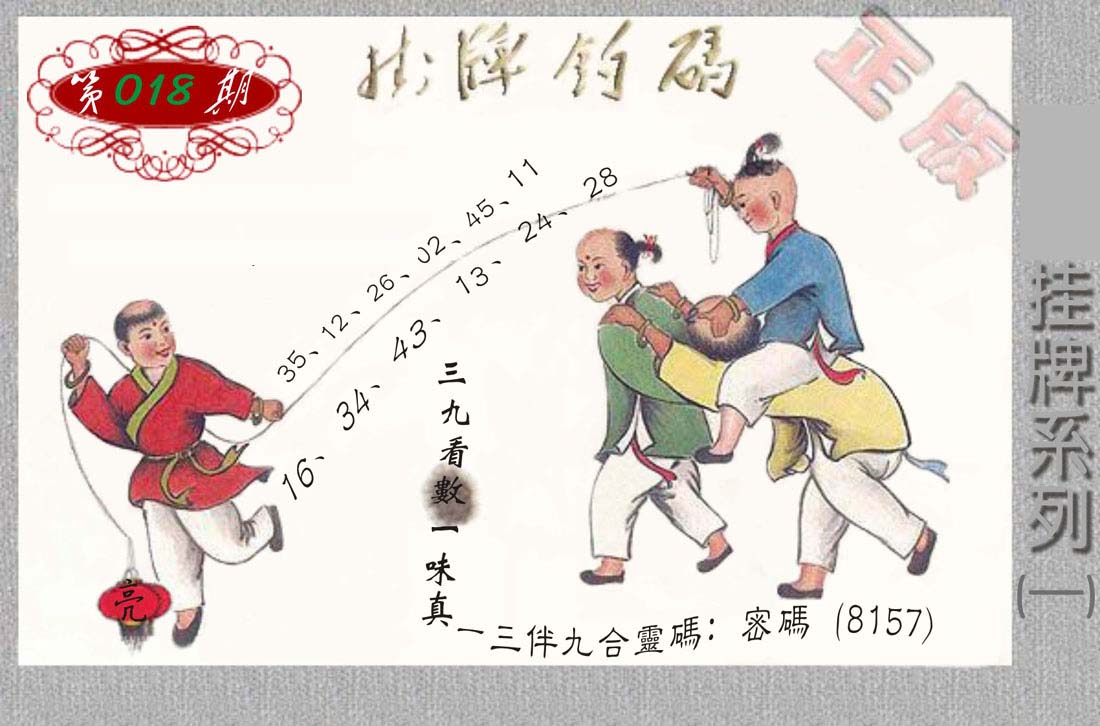 第018期
掛牌釣碼
正版
35、12、26、02、45、11
16、34、43、13、24、28
三九看數一味真
亮
一三伴九合靈碼：密碼（8157）
挂牌系列(一)